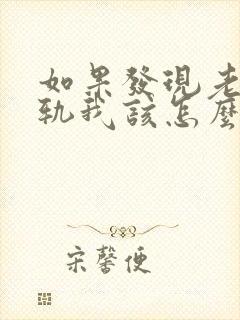 如果發現老
軌我該怎麼
宋馨便